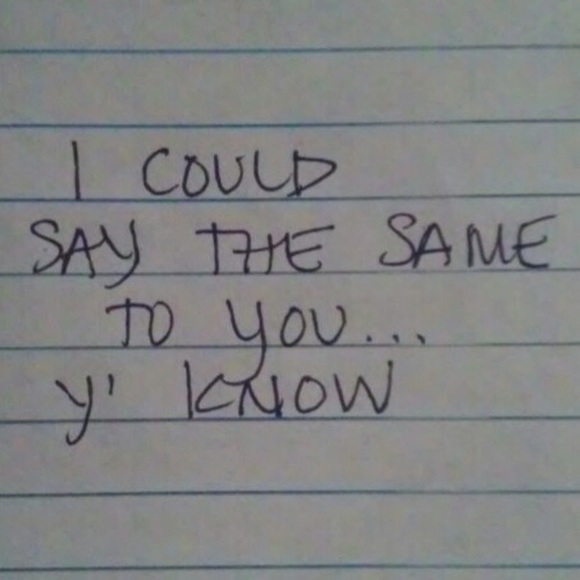 I COULD
SAY THE SAME
TO YOU...
Y' KNOW